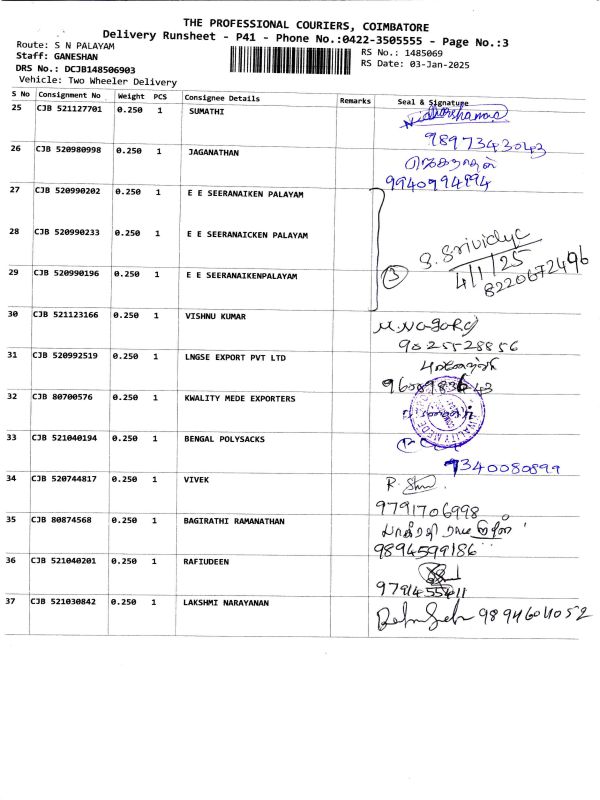 THE PROFESSIONAL COURIERS, COIMBATORE
Delivery Runsheet - P41 - Phone No.:0422-3505555 - Page No.:3
Route: S N PALAYAM
Staff: GANESHAN
DRS No.: DCJB148506903
Vehicle: Two Wheeler Delivery
RS No.: 1485069
RS Date: 03-Jan-2025
S No Consignment No Weight PCS Consignee Details Remarks Seal & Signature
25 CJB 521127701 0.250 1 SUMATHI
9897343043
26 CJB 520980998 0.250 1 JAGANATHAN
9940994894
27 CJB 520990202 0.250 1 E E SEERANAIKEN PALAYAM
28 CJB 520990233 0.250 1 E E SEERANAICKEN PALAYAM
S. Srividya
29 CJB 520990196 0.250 1 E E SEERANAIKENPALAYAM
3 4/1/25
8220672496
30 CJB 521123166 0.250 1 VISHNU KUMAR
9025528856
31 CJB 520992519 0.250 1 LNGSE EXPORT PVT LTD
32 CJB 80700576 0.250 1 KWALITY MEDE EXPORTERS
KWALITY MEDE
33 CJB 521040194 0.250 1 BENGAL POLYSACKS
7340080899
34 CJB 520744817 0.250 1 VIVEK
9791706998
35 CJB 80874568 0.250 1 BAGIRATHI RAMANATHAN
9894599186
36 CJB 521040201 0.250 1 RAFIUDEEN
9791455411
37 CJB 521030842 0.250 1 LAKSHMI NARAYANAN
9894604052